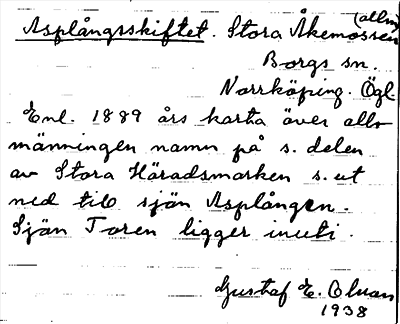 Asplångsskiftet. Stora Åkemossen (allm)
Borgs sn.
Norrköping. Ögl.
Enl. 1889 års karta över all-
männingen namn på s. delen
av Stora Häradsmarken s. ut
ned till sjön Asplången.
Sjön Toren ligger inuti.
Gustaf E. Olsson
1938